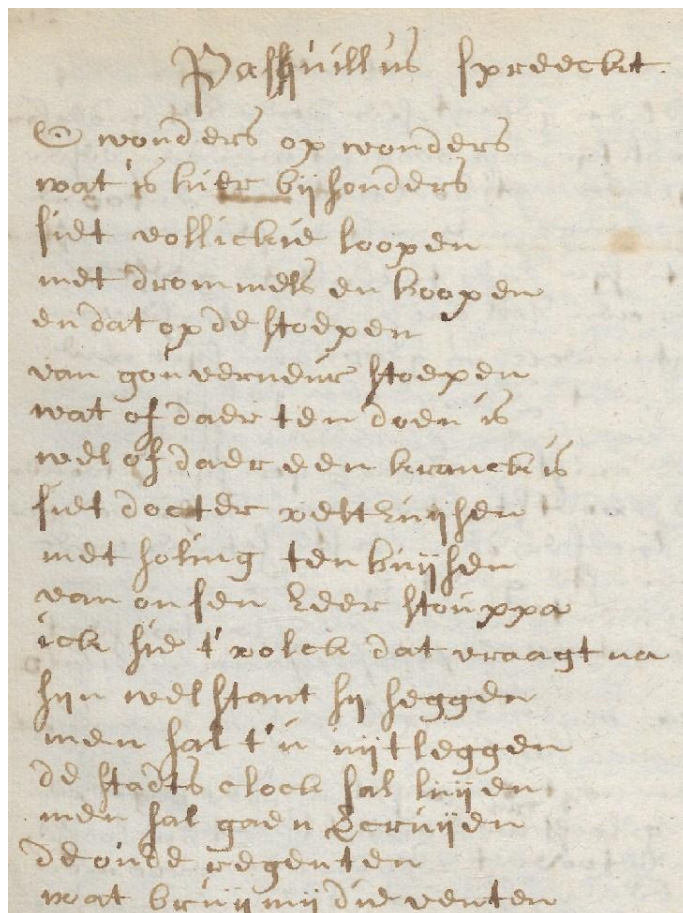 Pasquillus spreeckt.
O wonders op wonders
wat is hier bijsonders
siet vollickie loopen
met drommels en hoopen
en dat op de stoepen
van gouverneur stoepen
wat of daer ten doen is
wel of daer een kranck is
siet docter
met ten huijsen
van onsen Heer stouppa
ick sie t' volck dat vraagt na
sijn welstant sij seggen
men sal t' u uijtleggen
de stadts clock sal luijen
men sal gaen
de oude regenten
wat bruij mij die venten